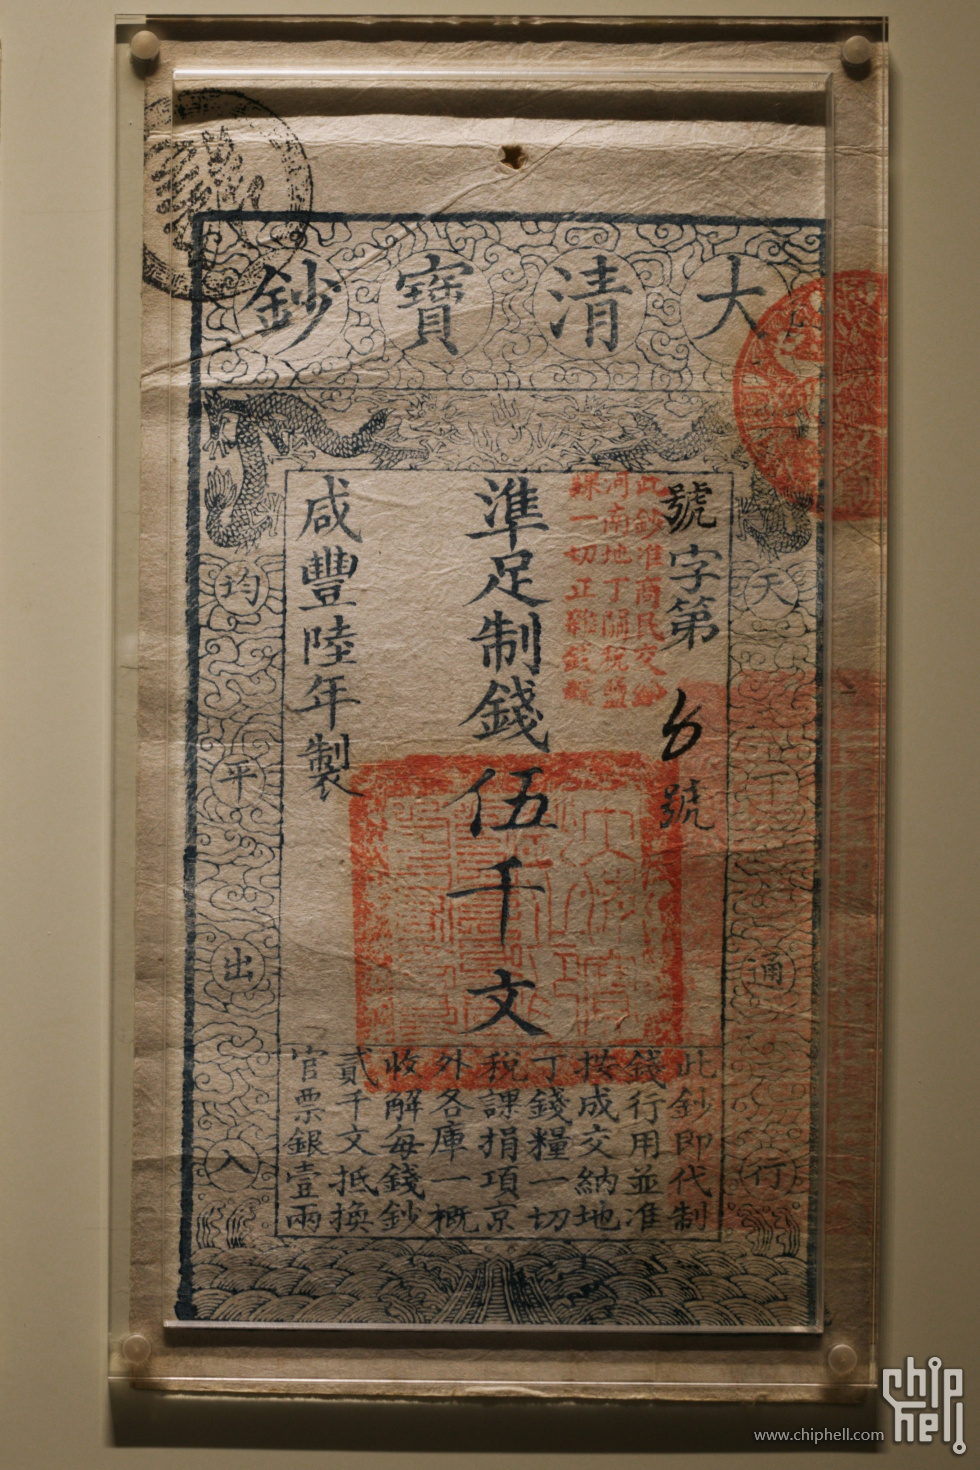 大清寶鈔
天下通行
均平出入
號字第
號
準足制錢伍千文
咸豐陸年製
此鈔准商民交納
河南地丁關稅鹽
課一切正雜錢糧
此鈔即代制
錢行用並准
按成交納地
丁錢糧一切
稅課捐項京
外各庫一概
收解每錢鈔
貳千文抵換
官票銀壹兩
chip
hell
www.chiphell.com